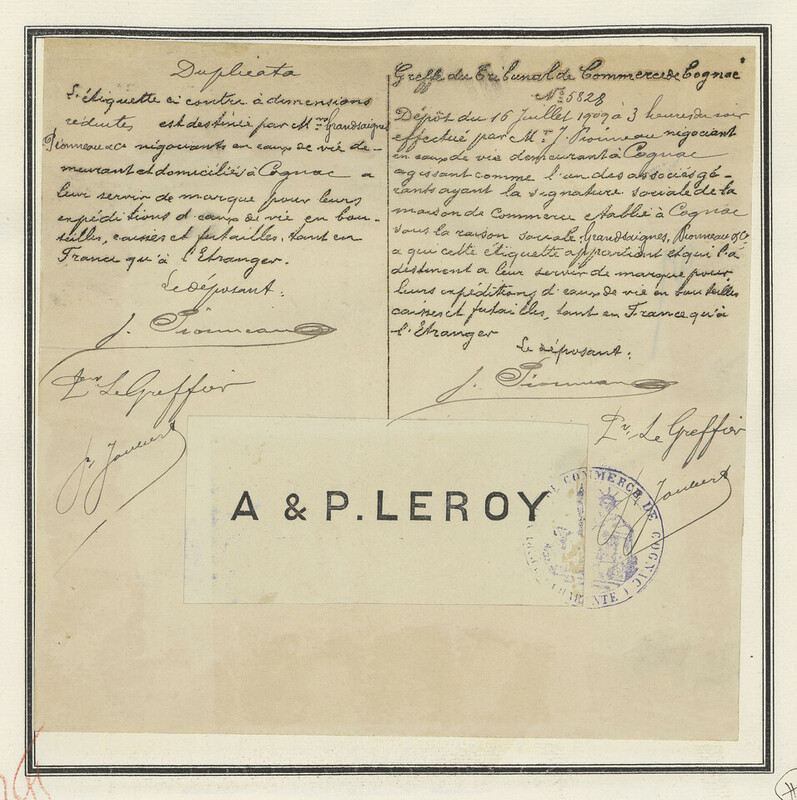 Duplicata
L'étiquette ci contre à dimensions
réduites, est destinée par M.rs Grandsaignes
Pionneau & Co négociants en eaux de vie de-
meurant et domiciliés à Cognac a
leur servir de marque pour leurs
expéditions d'eaux de vie en bou-
teilles, caisses et futailles, tant en
France qu'à l'Etranger.
Le déposant:
J. Pionneau
Pr Le Greffier
Joubert
Greffe du Tribunal de Commerce de Cognac
No 5828
Dépôt du 16 Juillet 1909 à 3 heures du soir
effectué par Mr J. Pionneau négociant
en eaux de vie demeurant à Cognac
agissant comme l'un des associés gé-
rants ayant la signature sociale de la
maison de Commerce etablie à Cognac
sous la raison sociale Grandsaignes, Pionneau & Co
a qui cette étiquette appartient et qui l'a
destinent a leur servir de marque pour
leurs expéditions d'eaux de vie en bouteilles
caisses et futailles, tant en France qu'à
l'Etranger
Le déposant:
J. Pionneau
Pr. Le Greffier
Joubert
A & P. LEROY
COMMERCE DE COGNAC